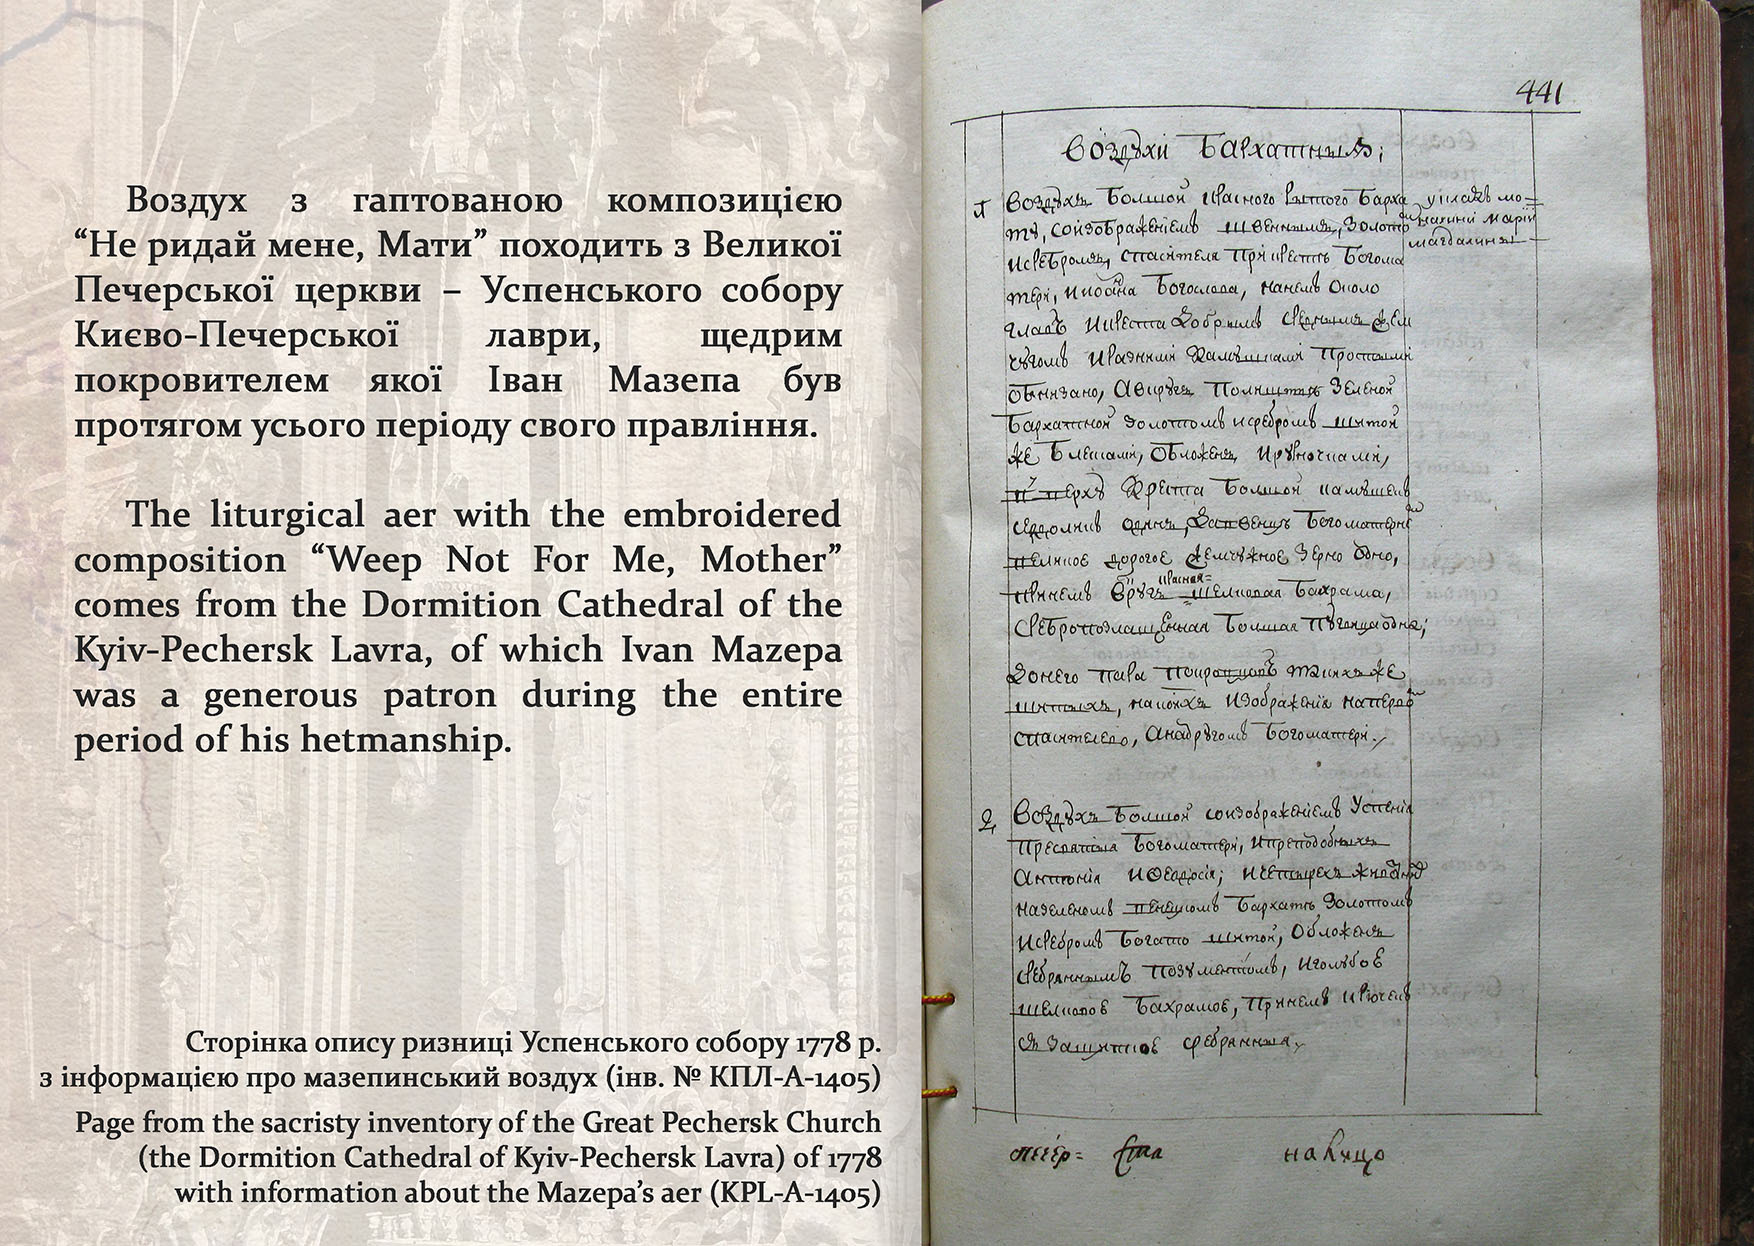 Воздух з гаптованою композицією
“Не ридай мене, Мати” походить з Великої
Печерської церкви – Успенського собору
Києво-Печерської лаври, щедрим
покровителем якої Іван Мазепа був
протягом усього періоду свого правління.
The liturgical aer with the embroidered
composition “Weep Not For Me, Mother”
comes from the Dormition Cathedral of the
Kyiv-Pechersk Lavra, of which Ivan Mazepa
was a generous patron during the entire
period of his hetmanship.
Сторінка опису ризниці Успенського собору 1778 р.
з інформацією про мазепинський воздух (інв. № КПЛ-А-1405)
Page from the sacristy inventory of the Great Pechersk Church
(the Dormition Cathedral of Kyiv-Pechersk Lavra) of 1778
with information about the Mazepa’s aer (KPL-A-1405)
441
Воздухи Бархатныя;
Воздухъ Болшой красного Барха
ту, соизображениемъ швеннымъ, Золотом
исребромъ, спасителя При кресть Богома
тери, Богослова, нанемъ около
главъ икреста добрымъ среднимъ жем
чугомъ иразними камушками Простыми
обнизано, Зеленой
Бархатной золотомъ исребромъ шитой
же Блешами, Обложенъ
Креста Болшой камушекъ
одинъ, Богоматерни
великое дорогое жемчужное Зерно одно,
красная
принемъ вкругъ шелковая Бахрама,
сребропозлащенная Болшая Пуговица одна;
донего пара такихже
шитыхъ, накоихъ изображения напервом
спасителево, Анадругомъ Богоматери.
Воздухъ Болшой соизображениемъ Успения
Пресвятыя Богоматери, ипреподобныхъ
Антония ифеодосия; ичетырехъ
назеленомъ Бархатъ Золотомъ
исребромъ Богато шитой, Обложенъ
сребраннымъ позументомъ, иголубою
шелковою Бахрамою, Принемъ
сребранныя.
на лицо